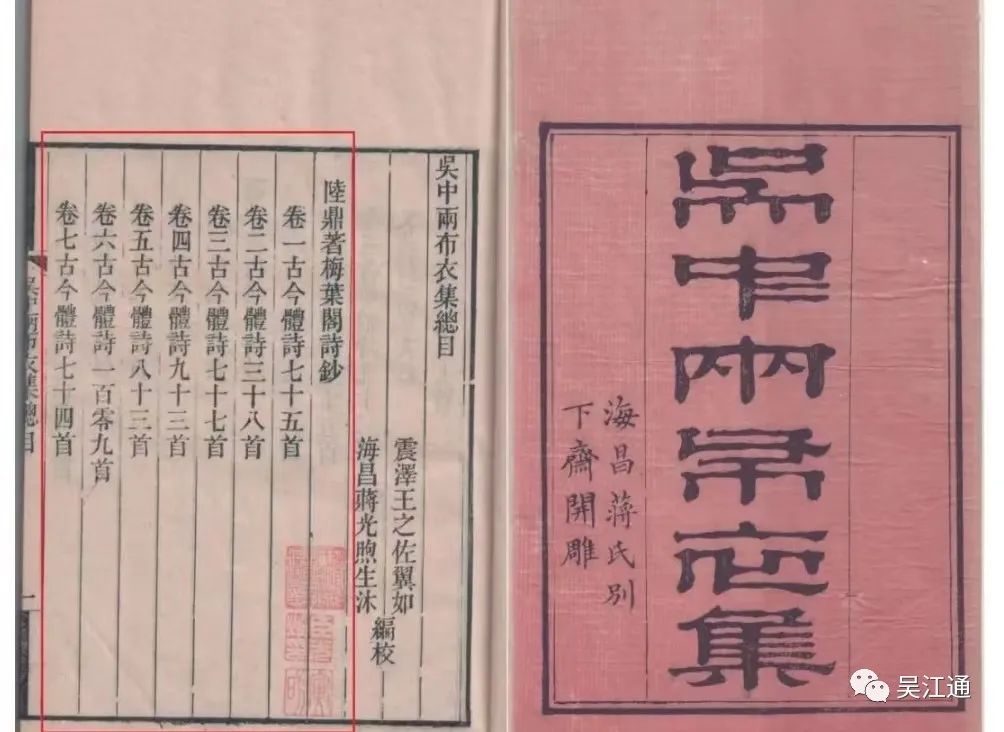 吳中兩布衣集
海昌蔣氏別
下齋開雕
吳中兩布衣集總目
震澤王之佐翼如
海昌蔣光煦生沐
編校
陸鼎著梅葉閣詩鈔
卷一古今體詩七十五首
卷二古今體詩三十八首
卷三古今體詩七十七首
卷四古今體詩九十三首
卷五古今體詩八十三首
卷六古今體詩一百零九首
卷七古今體詩七十四首
吳中兩布衣集總目
一
吴江通